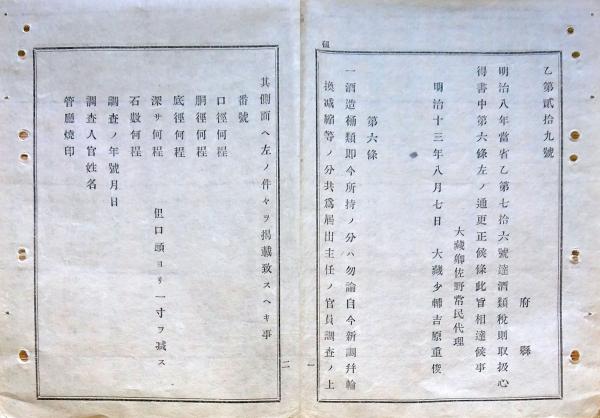 乙第貳拾九號
府縣
明治八年當省乙第七拾六號達酒類稅則取扱心
得書中第六條左ノ通更正候條此旨相達候事
大藏卿佐野常民代理
明治十三年八月七日 大藏少輔吉原重俊
第六條
一酒造桶類即今所持ノ分ハ勿論自今新調幷輪
換减縮等ノ分共爲届出主任ノ官員調査ノ上
一
其側面ヘ左ノ件々ヲ揭載致スヘキ事
番號
口徑何程
胴徑何程
底徑何程
深サ何程 但口頭ヨリ一寸ヲ减ス
石數何程
調査ノ年號月日
調査人官姓名
管廳燒印
二